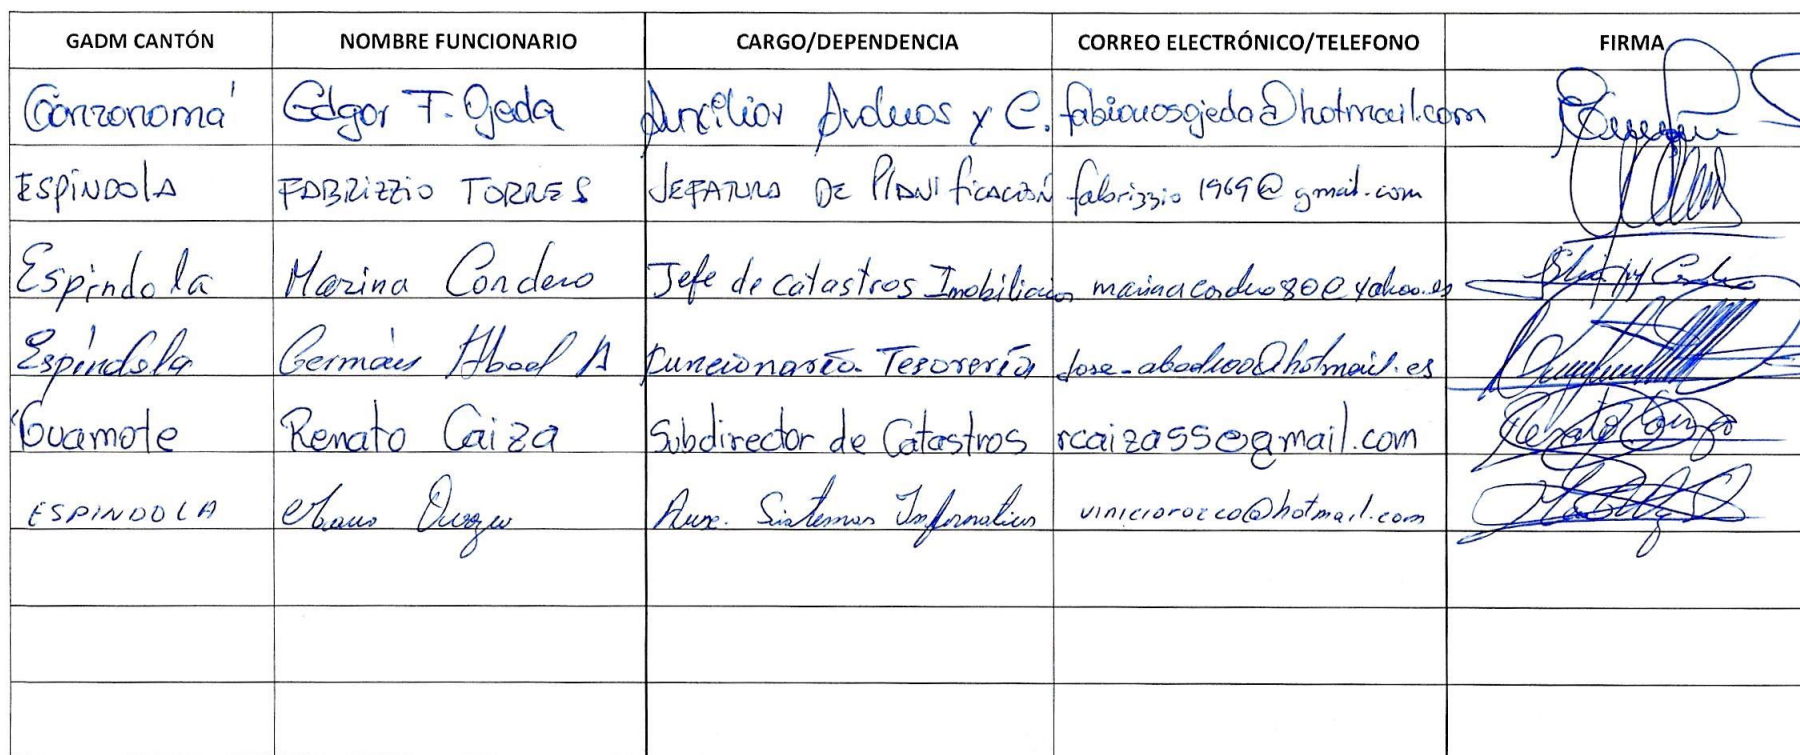 GADM CANTÓN NOMBRE FUNCIONARIO CARGO/DEPENDENCIA CORREO ELECTRÓNICO/TELEFONO FIRMA
Gonzonomá Edgar F. Ojeda Auxiliar y C. @hotmail.com
ESPÍNDOLA FABRIZZIO TORRES JEFATURA DE PLANIFICACIÓN fabrizzio1969@gmail.com
Espíndola Marina Cordero Jefe de catastros Inmobiliarios marinacordero80@yahoo.es
Espíndola Germán Abad A Funcionario-Tesorería @hotmail.es
Guamote Renato Caiza Subdirector de Catastros rcaiza55@gmail.com Renato Caiza
ESPINDOLA Aux. Sistemas @hotmail.com